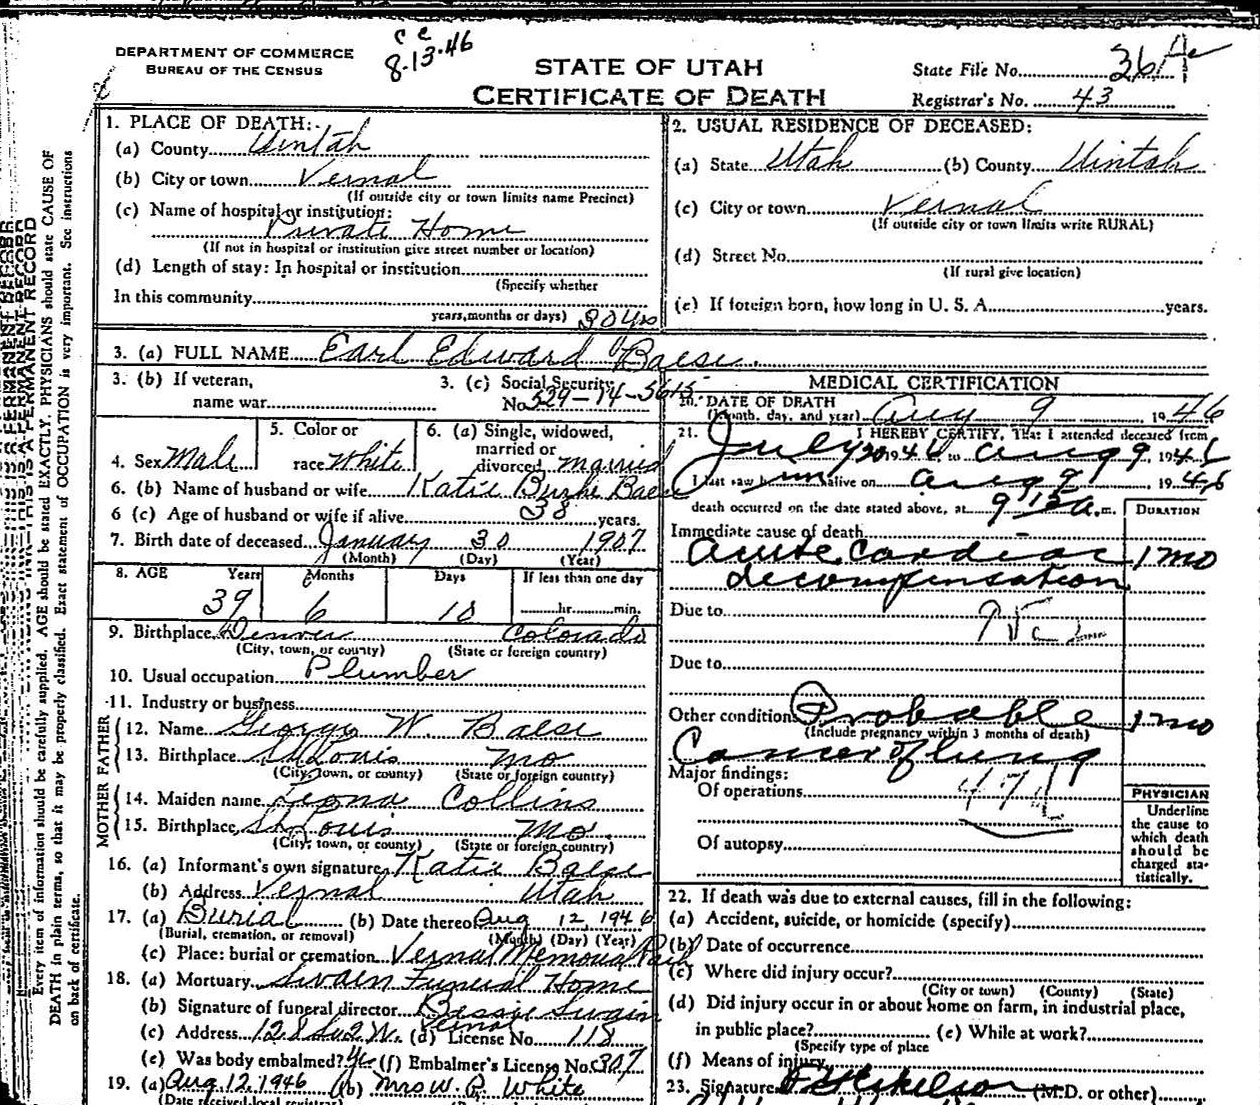 DEPARTMENT OF COMMERCE
BUREAU OF THE CENSUS
8-13-46
STATE OF UTAH
CERTIFICATE OF DEATH
State File No. 36
Registrar's No. 43
Every item of information should be carefully supplied. AGE should be stated EXACTLY. PHYSICIANS should state CAUSE OF
DEATH in plain terms, so that it may be properly classified. Exact statement of OCCUPATION is very important. See instructions
on back of certificate.
THIS IS A PERMANENT RECORD
1. PLACE OF DEATH:
(a) County Uintah
(b) City or town Vernal
(If outside city or town limits name Precinct)
(c) Name of hospital or institution:
Private Home
(If not in hospital or institution give street number or location)
(d) Length of stay: In hospital or institution
(Specify whether
In this community
years, months or days) 30 yrs
2. USUAL RESIDENCE OF DECEASED:
(a) State Utah (b) County Uintah
(c) City or town Vernal
(If outside city or town limits write RURAL)
(d) Street No.
(If rural give location)
(e) If foreign born, how long in U. S. A. years.
3. (a) FULL NAME Earl Edward Baese
3. (b) If veteran,
name war
3. (c) Social Security
No. 529-14-5615
4. Sex Male
5. Color or
race White
6. (a) Single, widowed,
married or
divorced married
6. (b) Name of husband or wife Katie Burke Baese
6 (c) Age of husband or wife if alive 38 years.
7. Birth date of deceased January 30 1907
(Month) (Day) (Year)
8. AGE Years Months Days If less than one day
39 6 10 hr. min.
9. Birthplace Denver Colorado
(City, town, or county) (State or foreign country)
10. Usual occupation Plumber
11. Industry or business
FATHER
12. Name George W. Baese
13. Birthplace St Louis Mo
(City, town, or county) (State or foreign country)
MOTHER
14. Maiden name Leona Collins
15. Birthplace St Louis Mo.
(City, town, or county) (State or foreign country)
16. (a) Informant's own signature Katie Baese
(b) Address Vernal Utah
17. (a) Burial (b) Date thereof Aug 12, 1946
(Burial, cremation, or removal) (Month) (Day) (Year)
(c) Place: burial or cremation Vernal Memorial Park
18. (a) Mortuary Swain Funeral Home
(b) Signature of funeral director Bessie Swain
(c) Address 128 So 2 W. Vernal (d) License No. 118
(e) Was body embalmed? (f) Embalmer's License No. 307
19. (a) Aug. 12, 1946 (b) Mrs W. White
(Date received local registrar)
MEDICAL CERTIFICATION
20. DATE OF DEATH
(Month, day, and year) Aug 9 1946
21. I HEREBY CERTIFY, That I attended deceased from
July 20 1946 to Aug 9, 1946
I last saw him alive on Aug 9 1946
death occurred on the date stated above, at 9 15 a. m.
DURATION
Immediate cause of death
Acute Cardiac 1 mo
decompensation
Due to
Due to
Other conditions Probable 1 mo
(Include pregnancy within 3 months of death)
Cancer of lung
Major findings:
Of operations
Of autopsy
PHYSICIAN
Underline
the cause to
which death
should be
charged sta-
tistically.
22. If death was due to external causes, fill in the following:
(a) Accident, suicide, or homicide (specify)
(b) Date of occurrence
(c) Where did injury occur?
(City or town) (County) (State)
(d) Did injury occur in or about home on farm, in industrial place,
in public place? (e) While at work?
(Specify type of place
(f) Means of injury
23. Signature (M.D. or other)